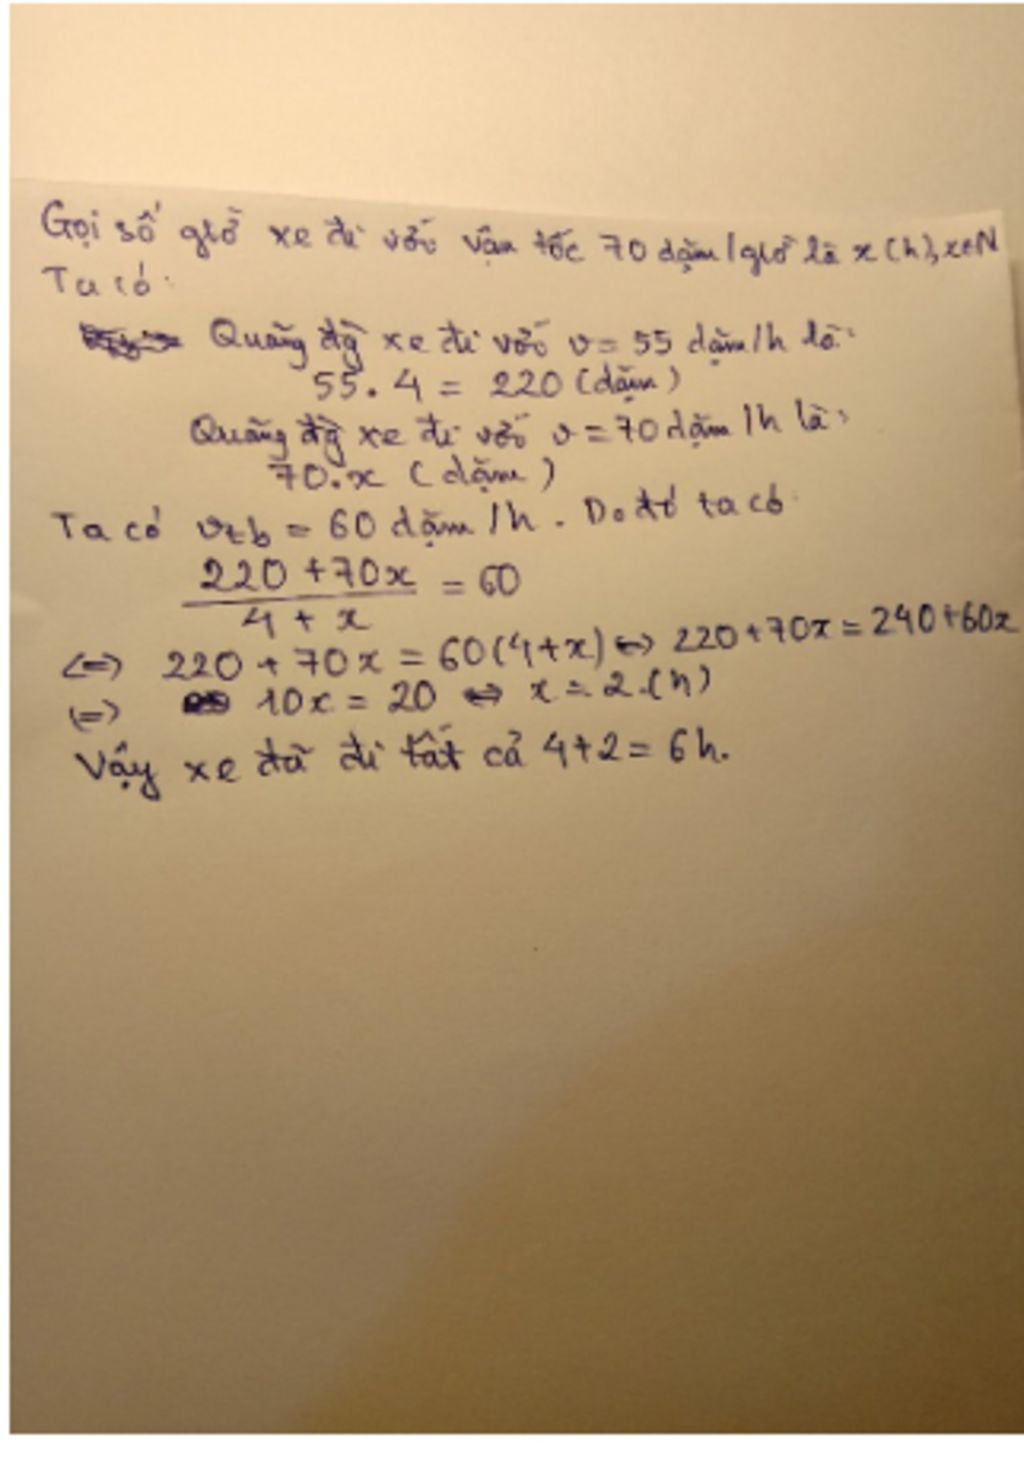 Gọi số giờ xe đi với vận tốc 70 dặm/giờ là x (h), x∈N
Ta có:
Quãng đg xe đi với v = 55 dặm/h là:
55 . 4 = 220 (dặm)
Quãng đg xe đi với v = 70 dặm/h là:
70.x (dặm)
Ta có vtb = 60 dặm/h. Do đó ta có
220 + 70x / 4 + x = 60
<=> 220 + 70x = 60(4+x) <=> 220 + 70x = 240 + 60x
<=> 10x = 20 <=> x = 2 (h)
Vậy xe đã đi tất cả 4+2 = 6h.